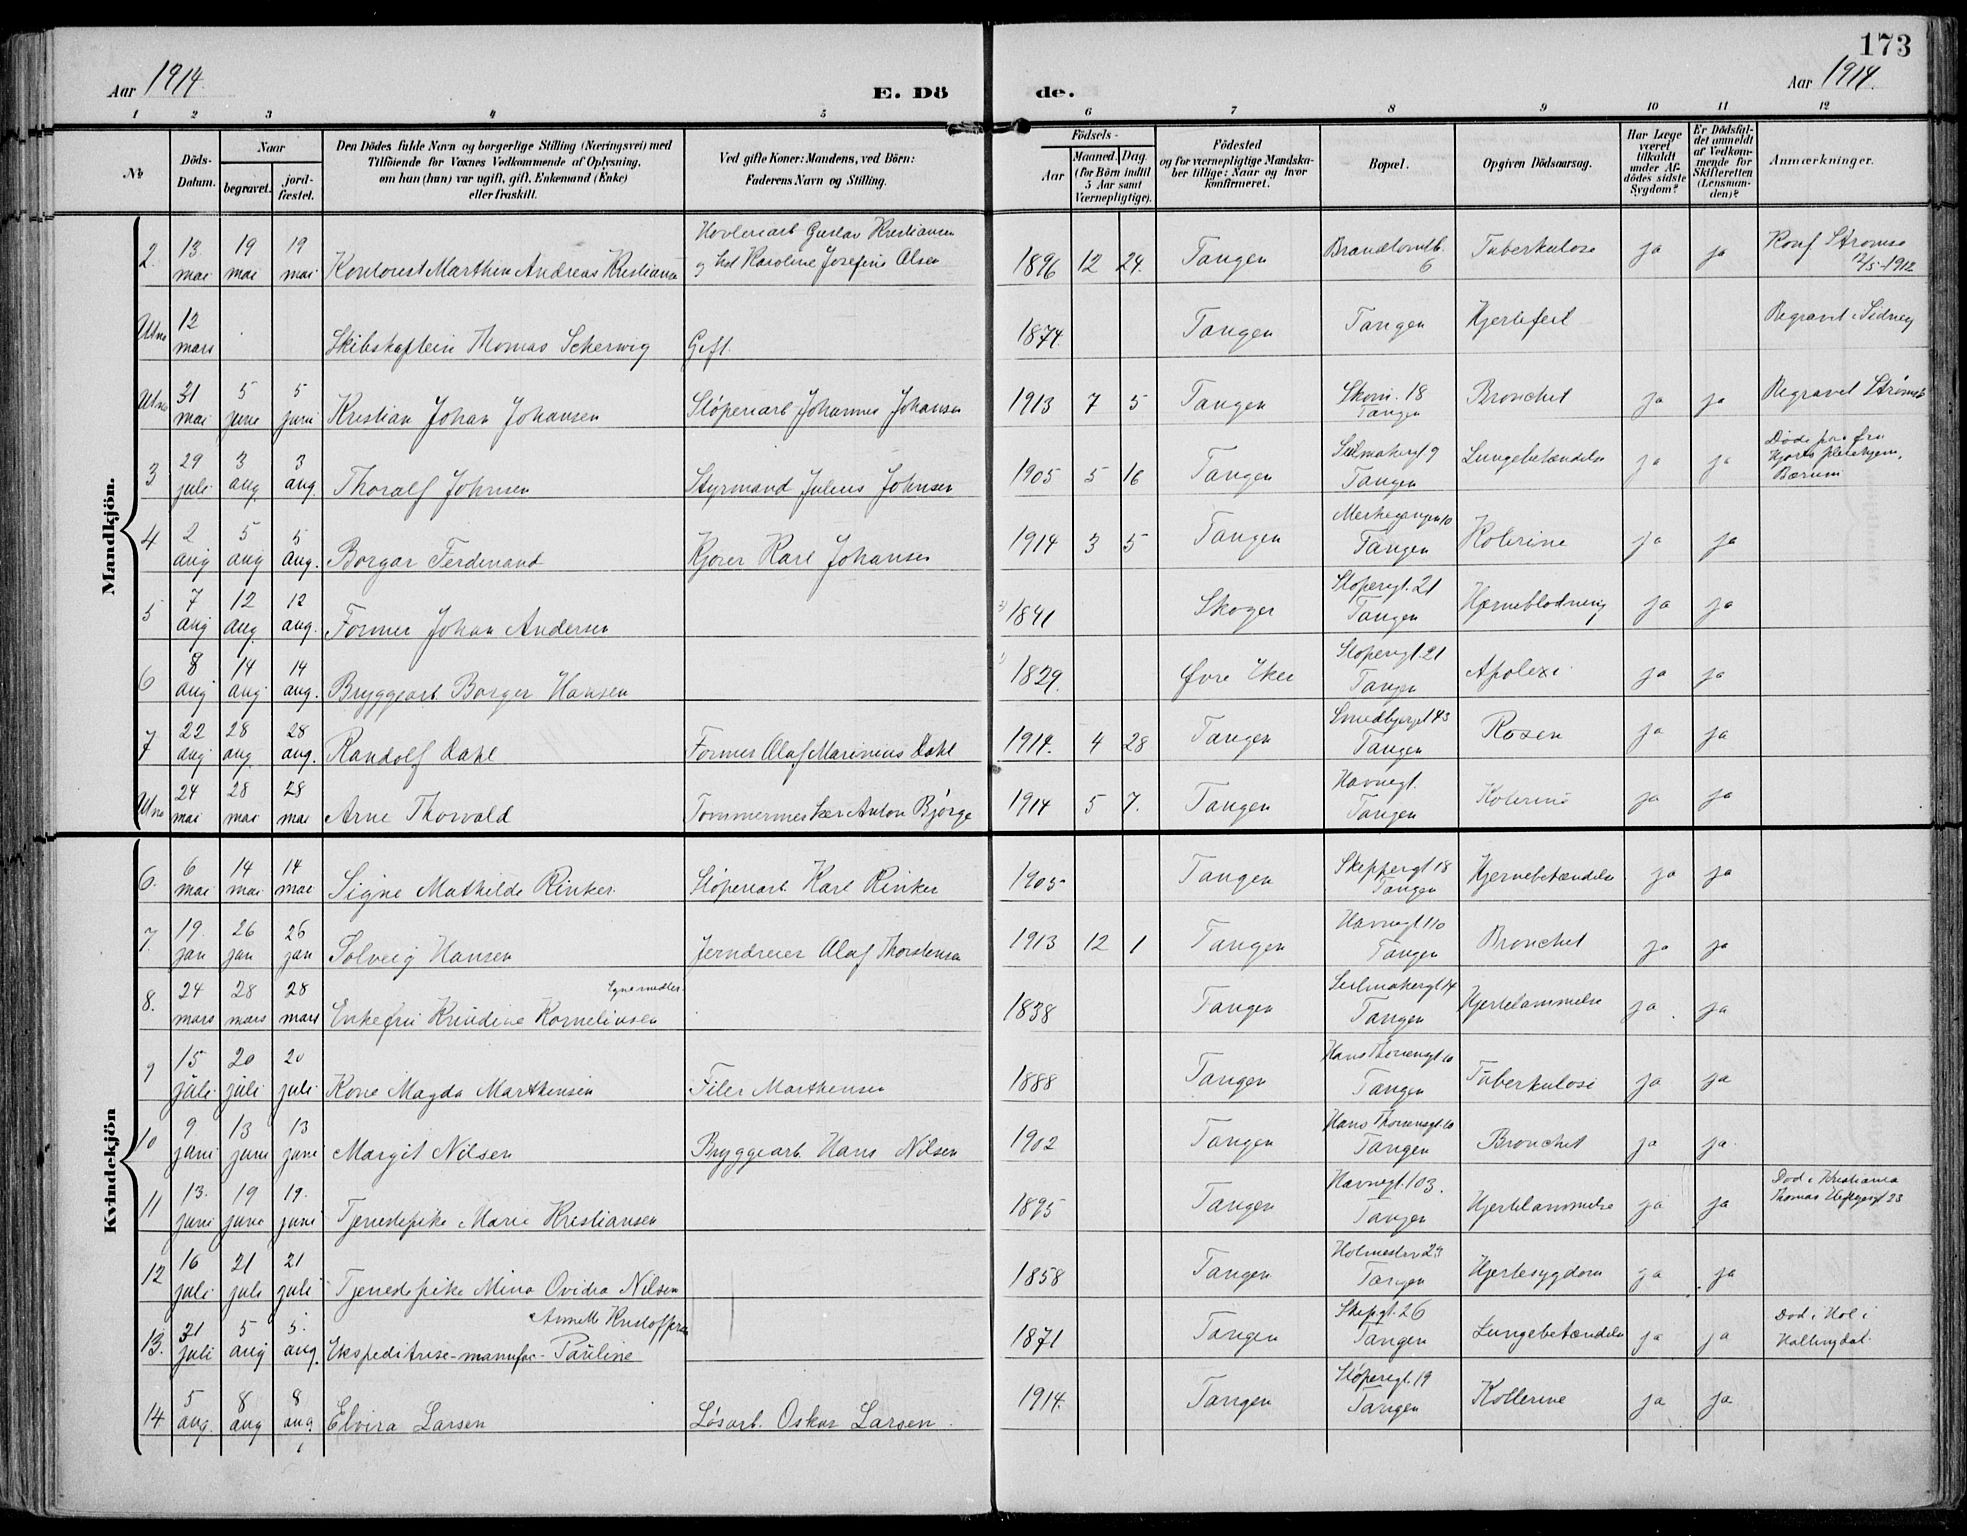 173
Aar 1914.
E. Dö
de.
Aar 1914.
1 2 3 4 5 6 7 8 9 10 11 12
№
Döds-Datum.
Naar
begravet.
jord-fæstet.
Den Dödes fulde Navn og borgerlige Stilling (Næringsvei) med
Tilföiende for Voxnes Vedkommende af Oplysning,
om han (hun) var ugift, gift, Enkemand (Enke)
eller fraskilt.
Ved gifte Koner: Mandens, ved Börn:
Faderens Navn og Stilling.
Födsels-
Aar
Maaned. Dag.
(for Börn indtil
5 Aar samt
Værnepligtige).
Födested
og for værnepligtige Mandska-
ber tillige: Naar og hvor
konfirmeret.
Bopæl.
Opgiven Dödsaarsag.
Har Læge
været
tilkaldt
under Af-
dödes sidste
Sygdom?
Er Dödsfal-
det anmeldt
af Vedkom-
mende for
Skifteretten
(Lensman-
den)?
Anmærkninger.
Mandkjön.
2. 13 mai 19 mai 19 mai Kontorist Marthin Andreas Kristiansen Hovleriarb Gustav Kristiansen og Karoline Josefine Olsen 1896 12 24. Tangen 6 Tuberkulose ja ja Konf Strømsø 12/5-1912
12 mars Skibskaptein Thomas Scherwig Gift. 1874 Tangen Tangen Hjertefeil Begravet i Sidney
31 mai 5 june 5 juni Kristian Johan Johansen Støperiarb Johannes Johansen 1913 7 5 Tangen 18 Tangen Bronchet ja ja Begravet Strømsø
3 29 juli 3 aug 3 aug. Thoralf Johnsen Styrmand Julius Johnsen 1905 5 16 Tangen Seilmakergt 9 Tangen Lungebetændelse ja ja Døde paa fru Hjorts pleiehjem, Bærum
4 2 aug 5 aug 5 aug. Borgar Ferdinand Kjører Karl Johansen 1914 3 5 Tangen 10 Tangen Kolerine ja ja
5 7 aug 12 aug. 12 aug. Former Johan Andersen 1841 Skoger Støperigt. 21 Tangen Hjerneblødning ja ja
6 8 aug 14 aug. 14 aug. Bryggearb. Borger Hansen 1829. Øvre Eker Støperigt 21 Tangen Apolexi ja ja
7 22 aug 28 aug 28 aug. Randolf Dahl Former Olaf Marinius Dahl 1914. 4 28 Tangen 43 Tangen Rosen ja ja
24 mai 28 mai 28 mai Arne Thorvald Tømmermester Anton Bjørge 1914 5 7. Tangen Havnegt. Tangen Kolerine ja ja
Kvindekjön
6. 6 mai 14 mai 14 mai Signe Mathilde Rinker. Støperiarb. Karl Rinker 1905 Tangen Skeppergt 18 Tangen Hjernebetændelse ja ja
7. 19. jan 26 jan 26 jan Solveig Hansen Jerndreier Olaf Thorstensen 1913 12 1 Tangen Havnegt 110 Tangen Bronchet ja ja
8. 24 mars 28 mars 28 mars Enkefru Kristine Kornelinsen Egne midler. 1838 Tangen Seilmakergt 14 Tangen Hjertelammelse ja ja
9 15 juli 20 juli 20 juli. Kone Magda Marthinsen Filer Marthinsen 1888 Tangen Hans Thornesgt 10 Tangen Tuberkulose ja ja
10 9 juni 13 juni 13 juni Margit Nilsen Bryggearb. Hans Nilsen 1902 Tangen Hans Thornesgt. 10 Tangen Bronchet ja ja.
11 13. juni 19 june 19. juni Tjenestepike Marie Kristiansen 1895 Tangen Havnegt. 103. Tangen Hjertelammelse ja ja Død i Kristiania Thomas Heftyesgt 23
12 16 juli 21 juli 21 juli Tjenestepike Mina Ovidia Nilsen 1858 Tangen 29 Tangen Hjertesygdom ja ja
13. 31 juli 5 aug 5. aug. Ekspeditrise-manufac- Pauline Annette Kristoffersen 1871 Tangen Skipgt. 26 Tangen Lungebetændelse ja ja Død i Hol i Hallingdal.
14 5 aug. 8 aug 8 aug. Elvira Larsen Løsarb. Oskar Larsen. 1914. Tangen Støperigt. 19 Tangen Kollerine ja ja